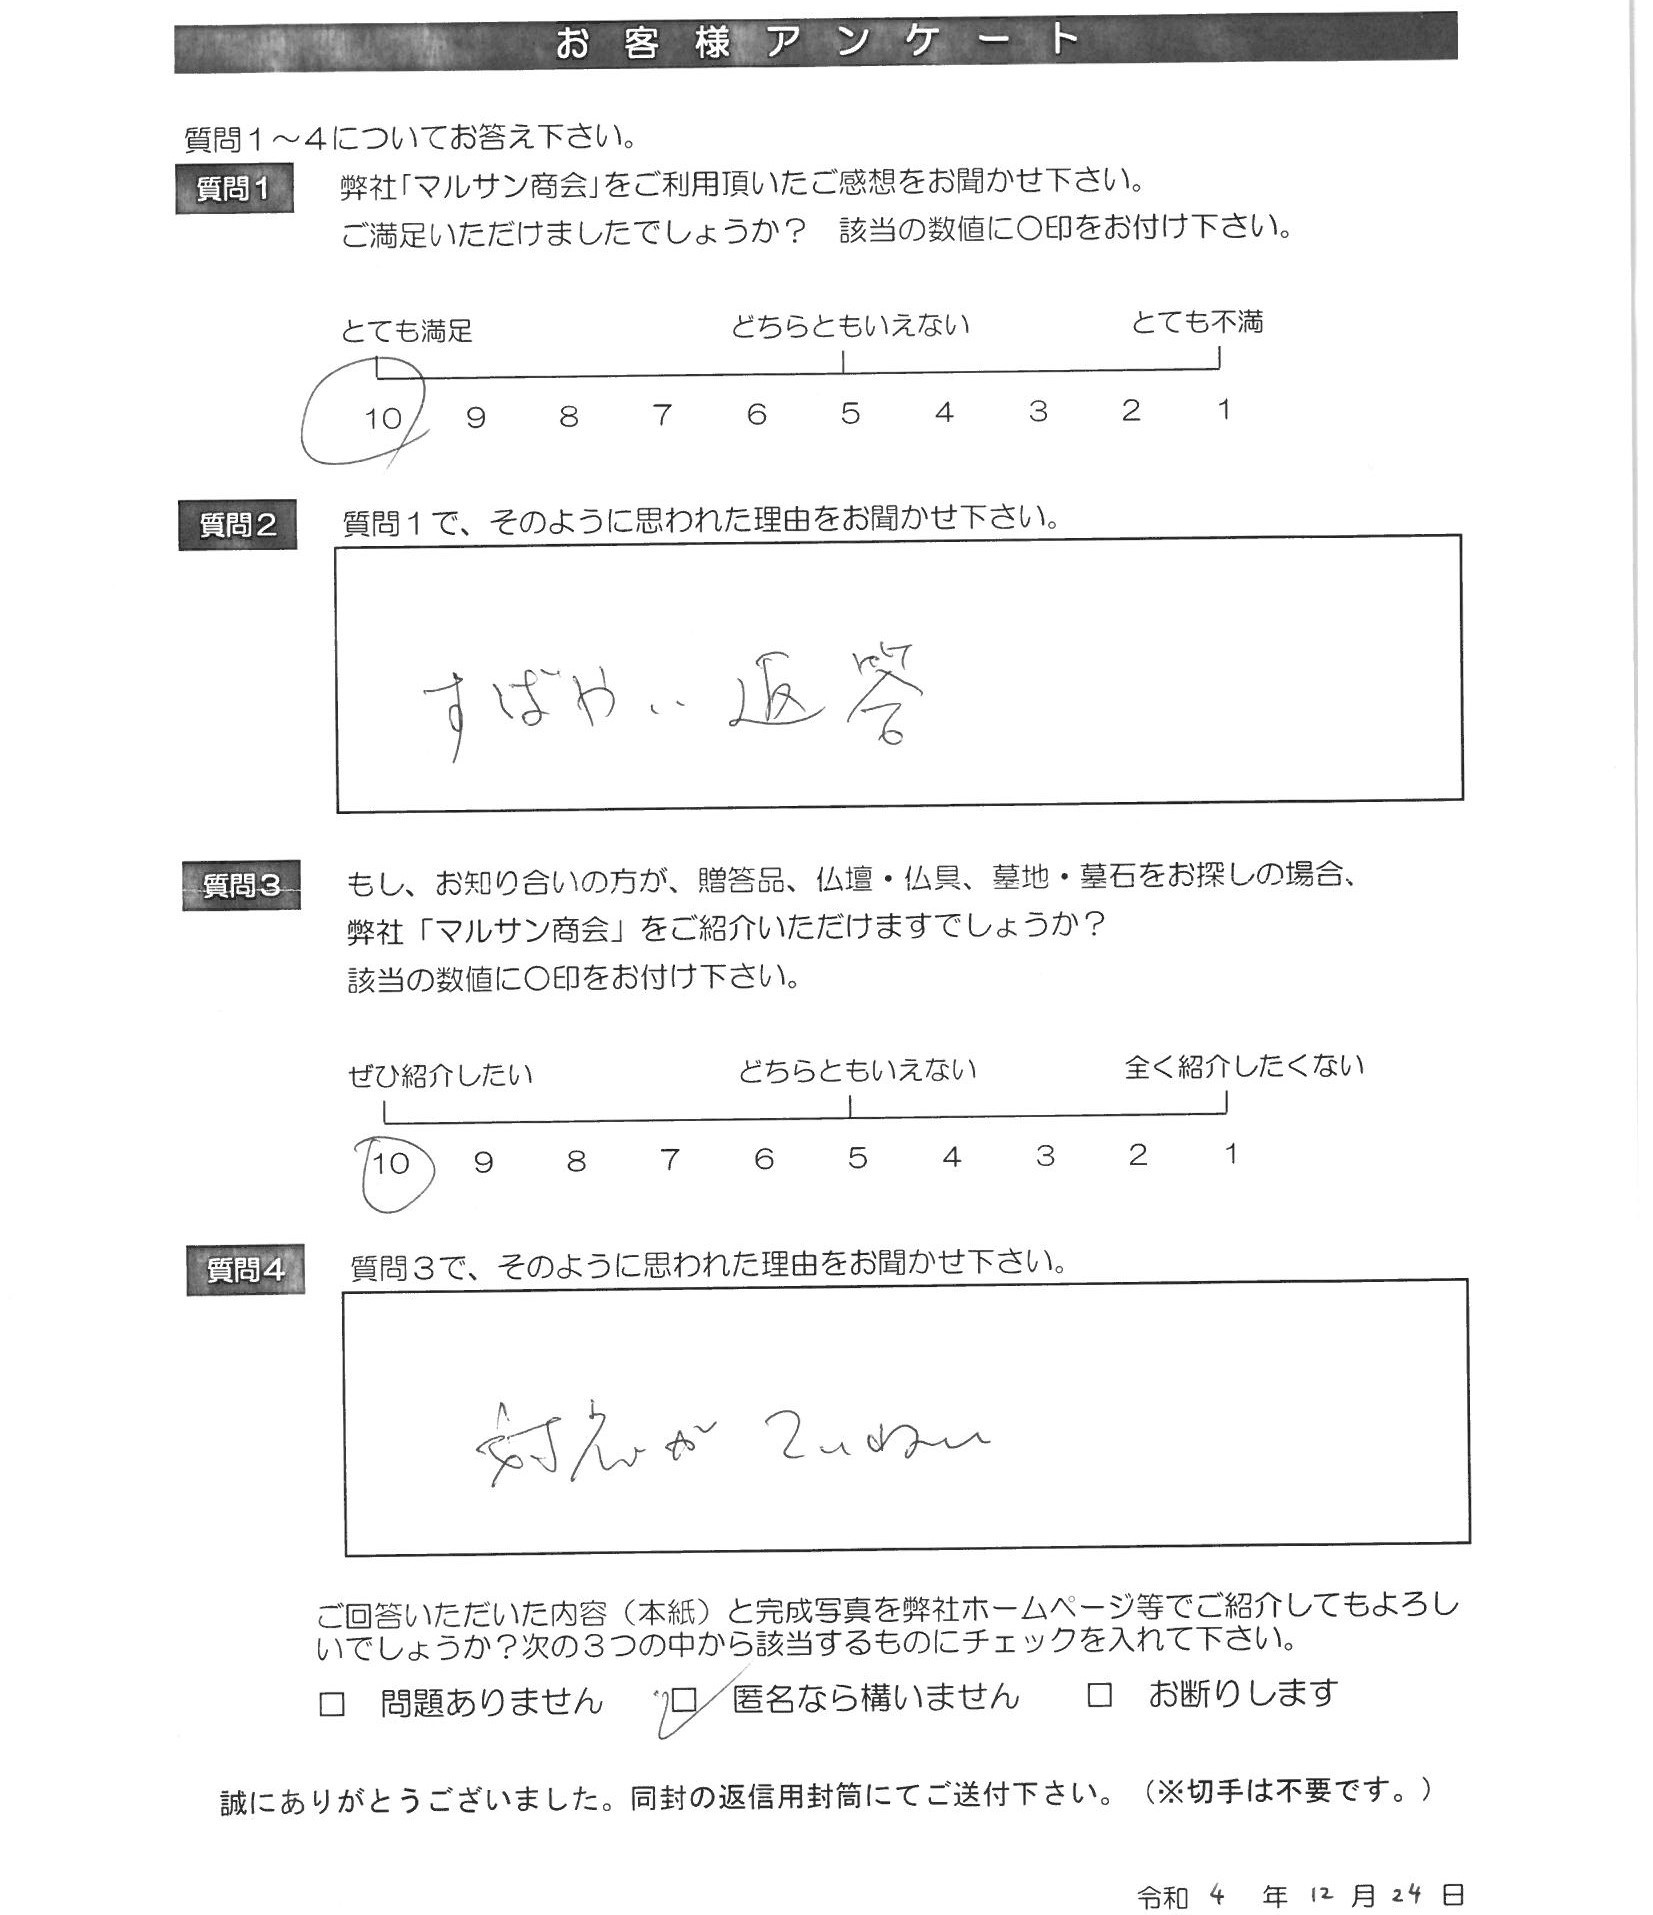 お客様アンケート
質問1～4についてお答え下さい。
質問1
弊社「マルサン商会」をご利用頂いたご感想をお聞かせ下さい。
ご満足いただけましたでしょうか？　該当の数値に〇印をお付け下さい。
とても満足　どちらともいえない　とても不満
10 9 8 7 6 5 4 3 2 1
質問2
質問1で、そのように思われた理由をお聞かせ下さい。
すばやい返答
質問3
もし、お知り合いの方が、贈答品、仏壇・仏具、墓地・墓石をお探しの場合、
弊社「マルサン商会」をご紹介いただけますでしょうか？
該当の数値に〇印をお付け下さい。
ぜひ紹介したい　どちらともいえない　全く紹介したくない
10 9 8 7 6 5 4 3 2 1
質問4
質問3で、そのように思われた理由をお聞かせ下さい。
対応がていねい
ご回答いただいた内容（本紙）と完成写真を弊社ホームページ等でご紹介してもよろし
いでしょうか？次の3つの中から該当するものにチェックを入れて下さい。
□ 問題ありません　□ 匿名なら構いません　□ お断りします
誠にありがとうございました。同封の返信用封筒にてご送付下さい。（※切手は不要です。）
令和 4 年 12 月 24 日